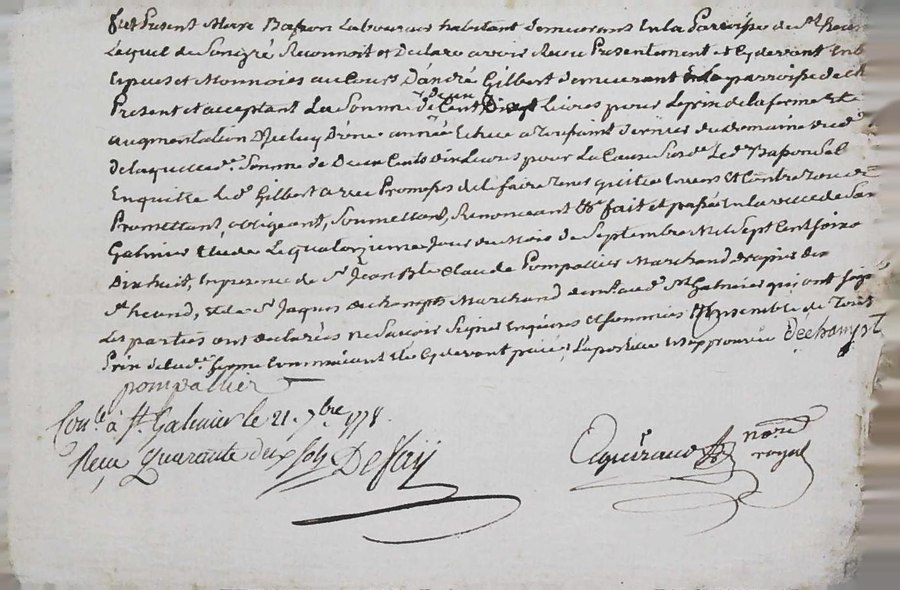 fut Present Pierre Bapon Laboureur habitant demeurant En la Paroisse de St
Lequel de Son gré Reconnoit et Declare avoir Receu Presentement et Cy devant En
Especes et Monnoies au Cours D'andré Gilbert demeurant paroisse de
Present et acceptant La Somme de deux Cent livres pour Le prix de la ferme et
augmentation D'une année Echue a Toussaint dernier du domaine
de laquelle de. Somme de Deux Cents dix Livres pour La Cause Susde Led. Bapon
En quitte Led. Gilbert avec Promesse de le faire Tenir quitte Envers et Contre Tous
Promettant, obligeant, Soumettant, Renonceant &c. fait et passé En la ville de Saint
Galmier Etude Le quatorzieme Jour du Mois de Septembre Mil Sept Cent Soixante
Dix huit, En presence de Sr. Jean Bte Claude Pompallier Marchand
Sr. Jaques Dechamps Marchand St Galmier qui ont signé
Les parties ont declarées ne Savoir Signer Enquises et Sommées
Prix de lad. ferme Cy devant approuvée Dechamps
pompallier
Conlé à St. Galmier le 21. 7bre 1778.
Reçu Quarante deux sols Defay
royal